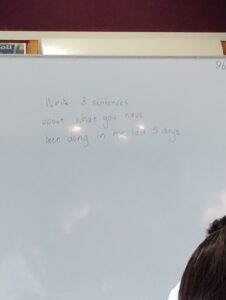 Write 3 sentences
about what you have
been doing in the last 5 days
96